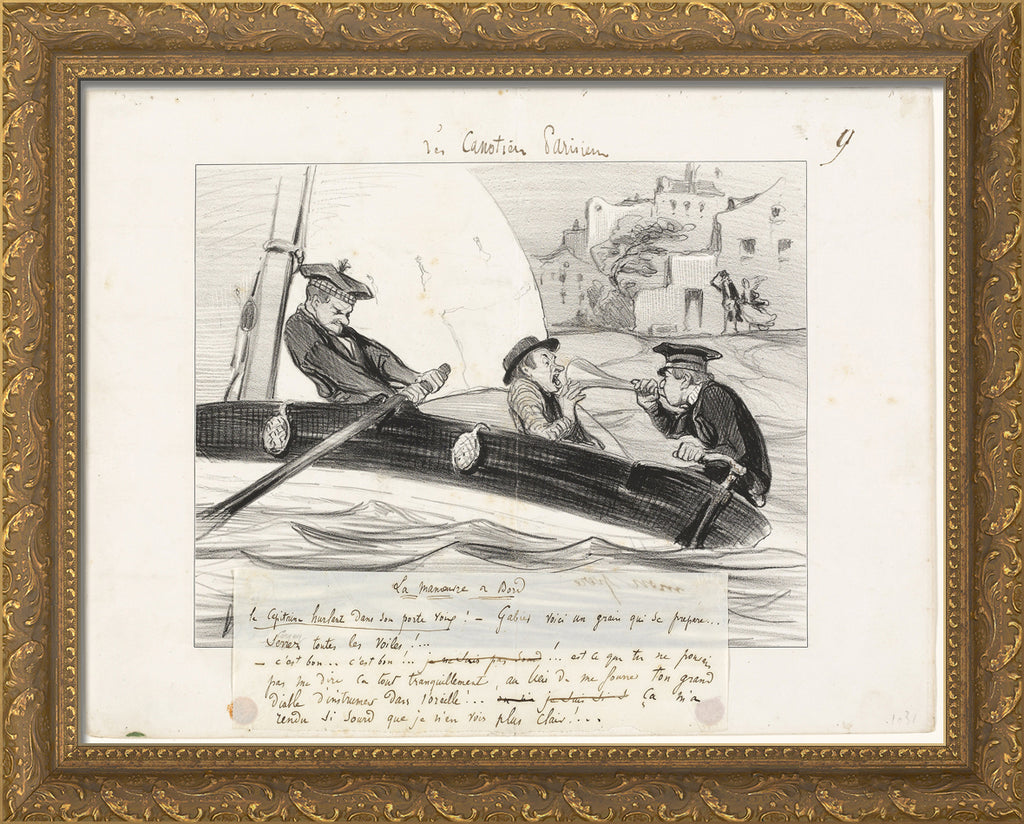 Les Canotiers Parisiens
9
La manœuvre a Bord
le Capitaine hurlant dans son porte voix ! — Gabier voici un grain qui se prepare....
Serrez toutes les voiles !....
— c'est bon.. c'est bon !... je ne suis pas sourd !... est ce que tu ne pouvais
pas me dire ça tout tranquillement, au lieu de me fourrer ton grand
diable d'instrument dans l'oreille !... je Ça m'a
rendu si sourd que je n'en vois plus clair !....